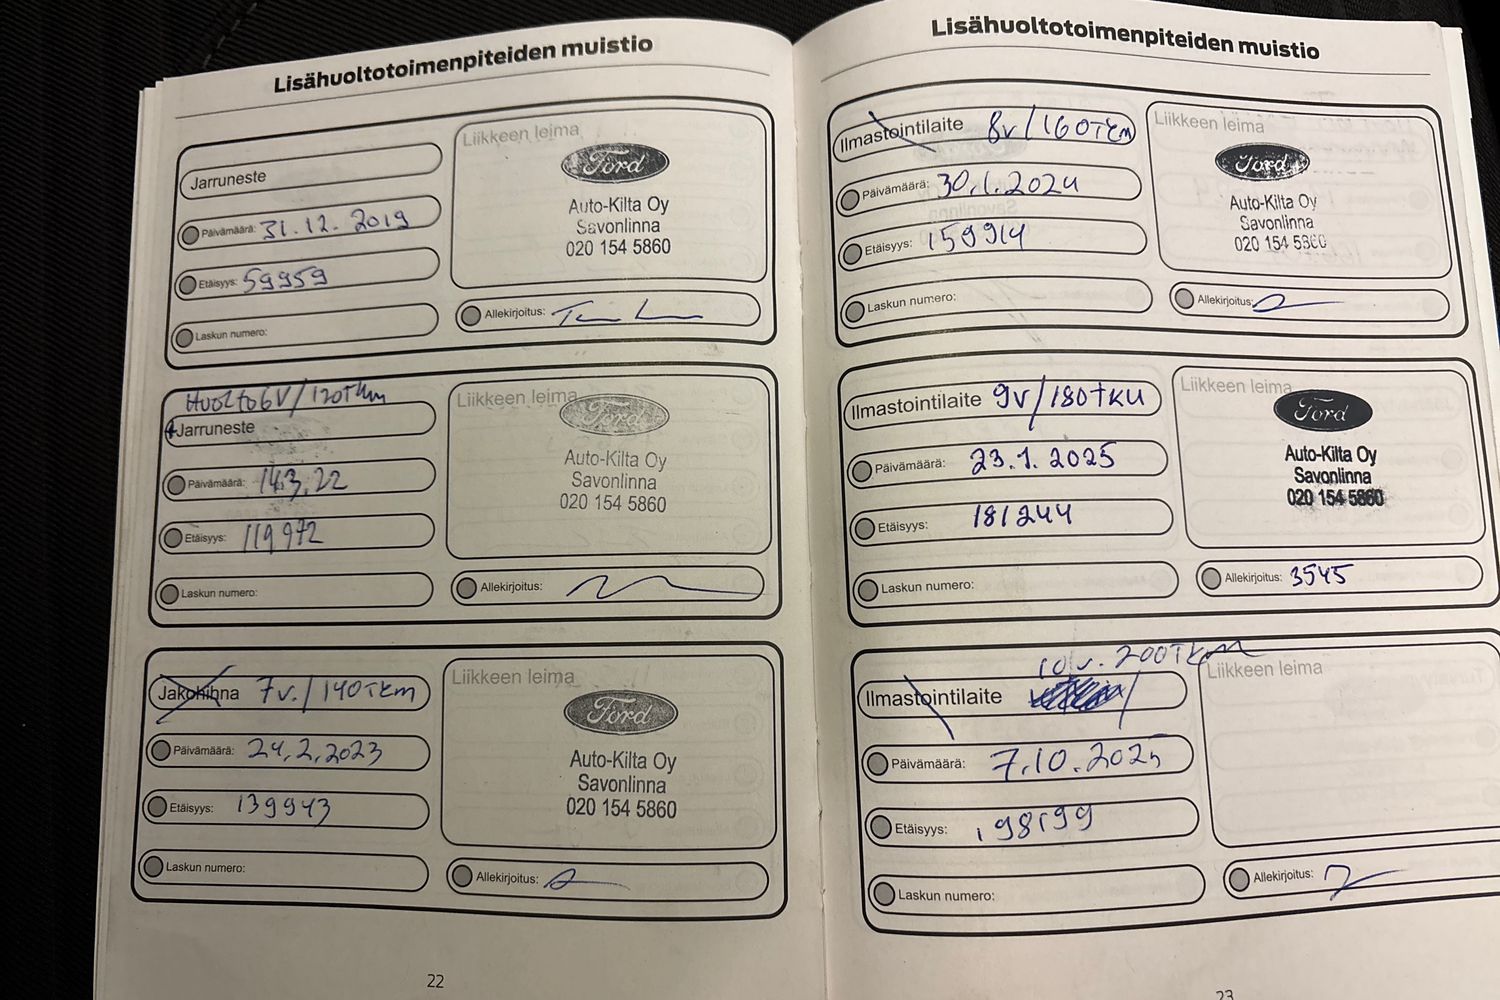 Lisähuoltotoimenpiteiden muistio
Jarruneste
Päivämäärä: 31.12.2019
Etäisyys: 59959
Laskun numero:
Liikkeen leima
Ford
Auto-Kilta Oy
Savonlinna
020 154 5860
Allekirjoitus:
Huolto 6V/120Tkm
+Jarruneste
Päivämäärä: 14.3.22
Etäisyys: 119972
Laskun numero:
Liikkeen leima
Ford
Auto-Kilta Oy
Savonlinna
020 154 5860
Allekirjoitus:
Jakohihna 7v./140Tkm
Päivämäärä: 24.2.2023
Etäisyys: 139943
Laskun numero:
Liikkeen leima
Ford
Auto-Kilta Oy
Savonlinna
020 154 5860
Allekirjoitus:
22
Lisähuoltotoimenpiteiden muistio
Ilmastointilaite 8v/160Tkm
Päivämäärä: 30.1.2024
Etäisyys: 159914
Laskun numero:
Liikkeen leima
Ford
Auto-Kilta Oy
Savonlinna
020 154 5860
Allekirjoitus:
Ilmastointilaite 9v/180TKM
Päivämäärä: 23.1.2025
Etäisyys: 181244
Laskun numero:
Liikkeen leima
Ford
Auto-Kilta Oy
Savonlinna
020 154 5860
Allekirjoitus: 3545
10v. 200Tkm
Ilmastointilaite
Päivämäärä: 7.10.2025
Etäisyys: 198199
Laskun numero:
Liikkeen leima
Allekirjoitus:
23